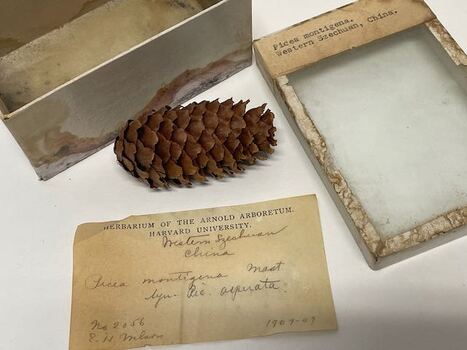 Picea montigena.
Western Szechuan, China.
HERBARIUM OF THE ARNOLD ARBORETUM.
HARVARD UNIVERSITY.
Western Szechuan
China
Picea montigena Mast
Syn. Pic. asperata
No 2056
E. H. Wilson
1907-09